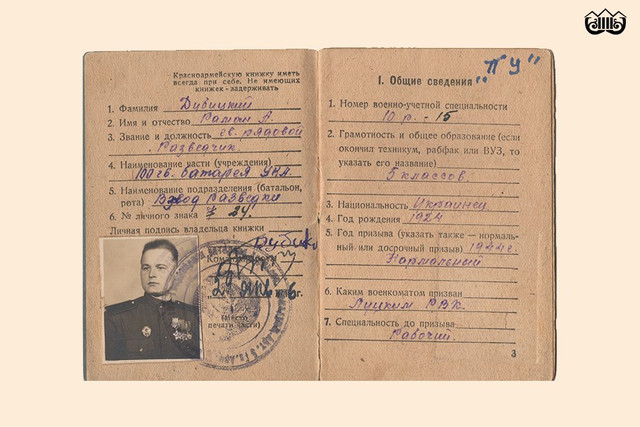 Красноармейскую книжку иметь
всегда при себе. Не имеющих
книжек - задерживать
1. Фамилия Дивицкий
2. Имя и отчество Роман А.
3. Звание и должность гв. рядовой
Разведчик.
4. Наименование части (учреждения)
100 гв. батарея
5. Наименование подразделения (батальон,
рота) Взвод разведки
6. № личного знака
Личная подпись владельца книжки
(Место
печати части)
"ПУ"
I. Общие сведения
1. Номер военно-учетной специальности
10 р. - 15
2. Грамотность и общее образование (если
окончил техникум, рабфак или ВУЗ, то
указать его название)
5 классов.
3. Национальность Украинец
4. Год рождения 1924
5. Год призыва (указать также — нормаль-
ный или досрочный призыв) 1944 г.
Нормальный
6. Каким военкоматом призван
Луцким РВК.
7. Специальность до призыва
Рабочий.
3